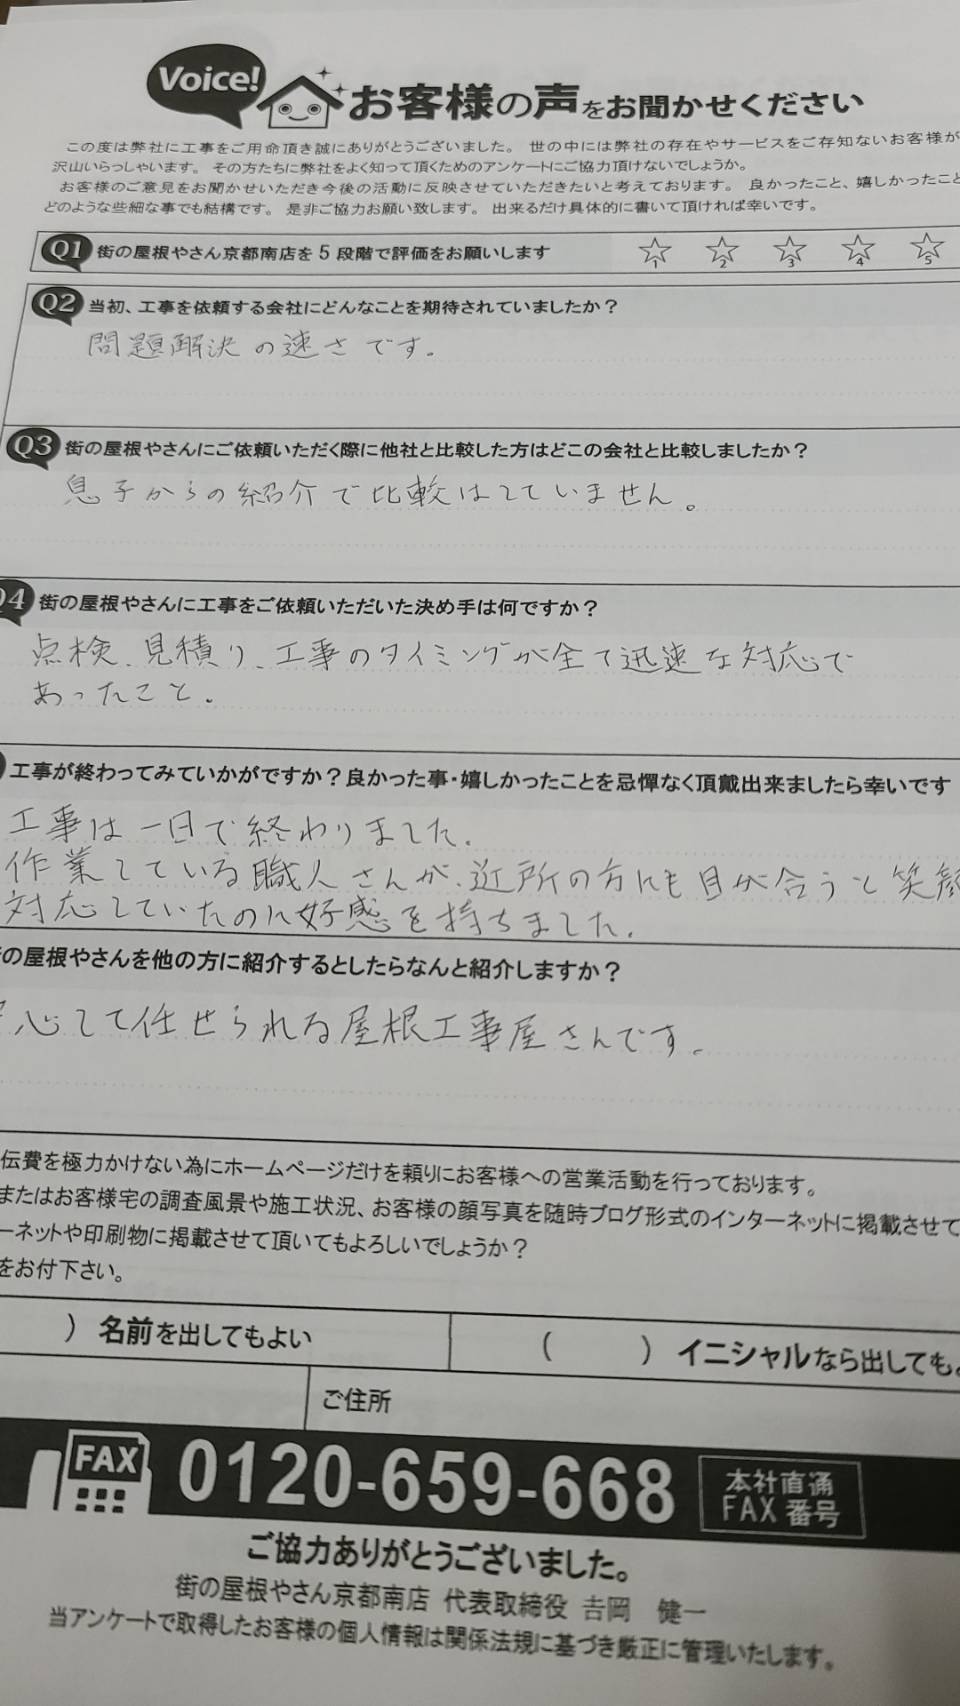 Voice! お客様の声をお聞かせください
この度は弊社に工事をご用命頂き誠にありがとうございました。 世の中には弊社の存在やサービスをご存知ないお客様が
沢山いらっしゃいます。 その方たちに弊社をよく知って頂くためのアンケートにご協力頂けないでしょうか。
お客様のご意見をお聞かせいただき今後の活動に反映させていただきたいと考えております。 良かったこと、嬉しかったこと
どのような些細な事でも結構です。 是非ご協力お願い致します。 出来るだけ具体的に書いて頂ければ幸いです。
Q1 街の屋根やさん京都南店を5段階で評価をお願いします ☆1 ☆2 ☆3 ☆4 ☆5
Q2 当初、工事を依頼する会社にどんなことを期待されていましたか？
問題解決の速さです。
Q3 街の屋根やさんにご依頼いただく際に他社と比較した方はどこの会社と比較しましたか？
息子からの紹介で比較はしていません。
Q4 街の屋根やさんに工事をご依頼いただいた決め手は何ですか？
点検、見積り、工事のタイミングが全て迅速な対応で
あったこと。
工事が終わってみていかがですか？良かった事・嬉しかったことを忌憚なく頂戴出来ましたら幸いです
工事は一日で終わりました。
作業している職人さんが、近所の方にも目が合うと笑顔
対応していたのに好感を持ちました。
の屋根やさんを他の方に紹介するとしたらなんと紹介しますか？
心して任せられる屋根工事屋さんです。
伝費を極力かけない為にホームページだけを頼りにお客様への営業活動を行っております。
またはお客様宅の調査風景や施工状況、お客様の顔写真を随時ブログ形式のインターネットに掲載させて
ーネットや印刷物に掲載させて頂いてもよろしいでしょうか？
をお付下さい。
） 名前を出してもよい （ ） イニシャルなら出しても
ご住所
FAX 0120-659-668 本社直通
FAX 番号
ご協力ありがとうございました。
街の屋根やさん京都南店 代表取締役 吉岡 健一
当アンケートで取得したお客様の個人情報は関係法規に基づき厳正に管理いたします。